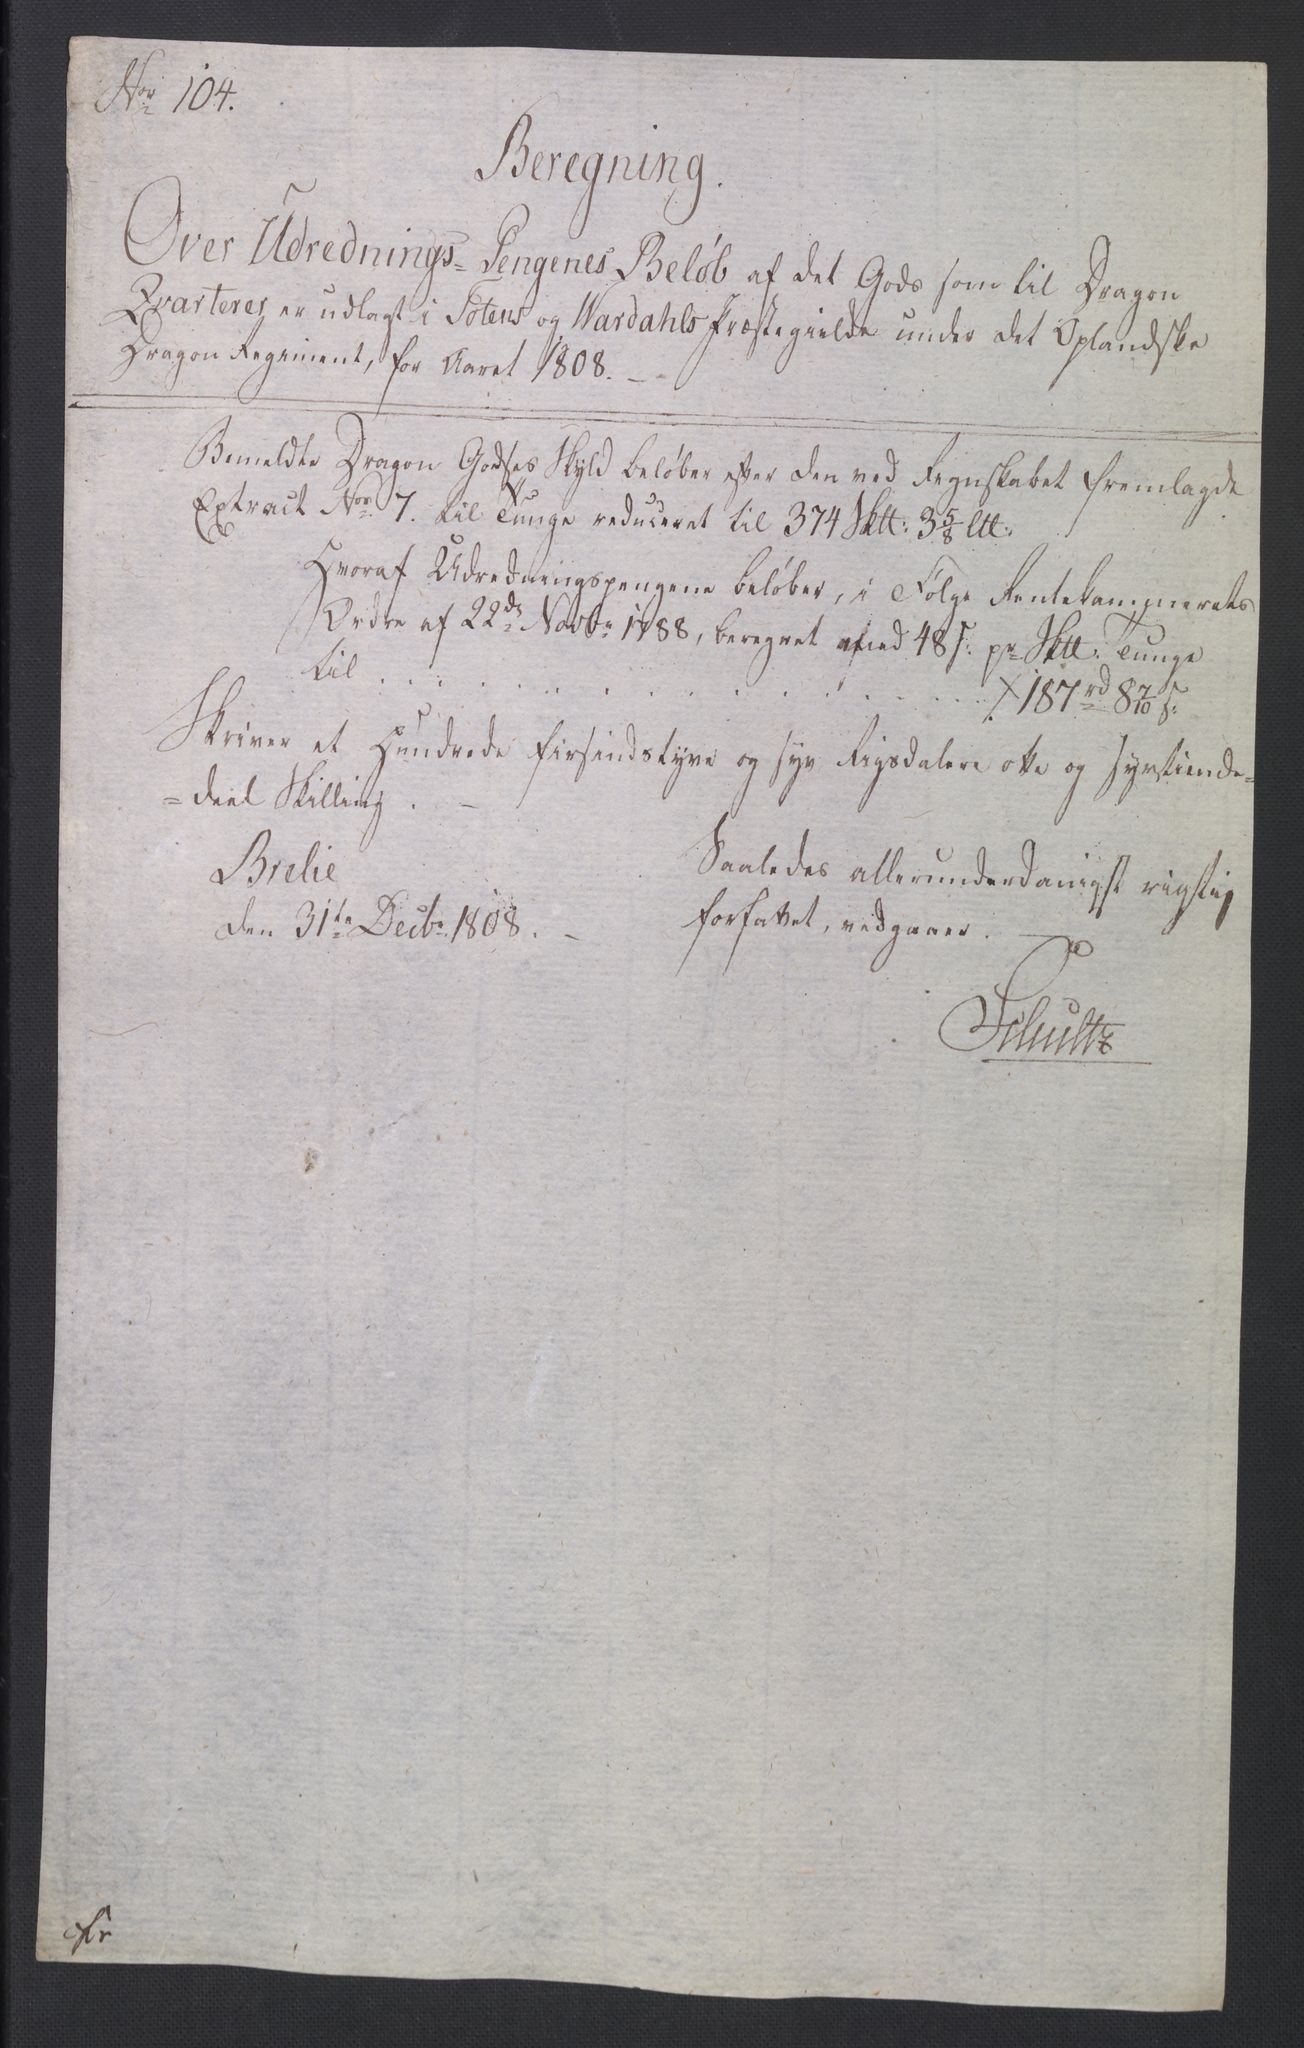 No͞r 104.
Beregning.
Over Udrednings= Pengenes Beløb af det Gods som til Dragon
Qvarterer er udlagt i Totens og Wardahls Præstegielde under det Oplandske
Dragon Regiment, for Aaret 1808. —
Bemeldte Dragon Godses Skyld beløber efter den ved Regnskabet fremlagde
Extract Nor 7. til Tunge reduceret til 374 Sktt: 3 5/8 ltt:
Hvoraf Udredningspengene beløber, i Følge Rentekammerets
Ordre af 22de Novbr 1788, beregnet med 48 s: pr Sktt: Tunge
til . . . . . . . . . . . . . 187 rd 8 7/10 s:
Skriver et Hundrede firsindstyve og syv Rigsdalere otte og syvtiende=
=deel Skilling. —
Brelie
den 31te Decbr 1808. —
Saaledes allerunderdanigst rigtig
forfattet, vedgaaer. —
Schultz